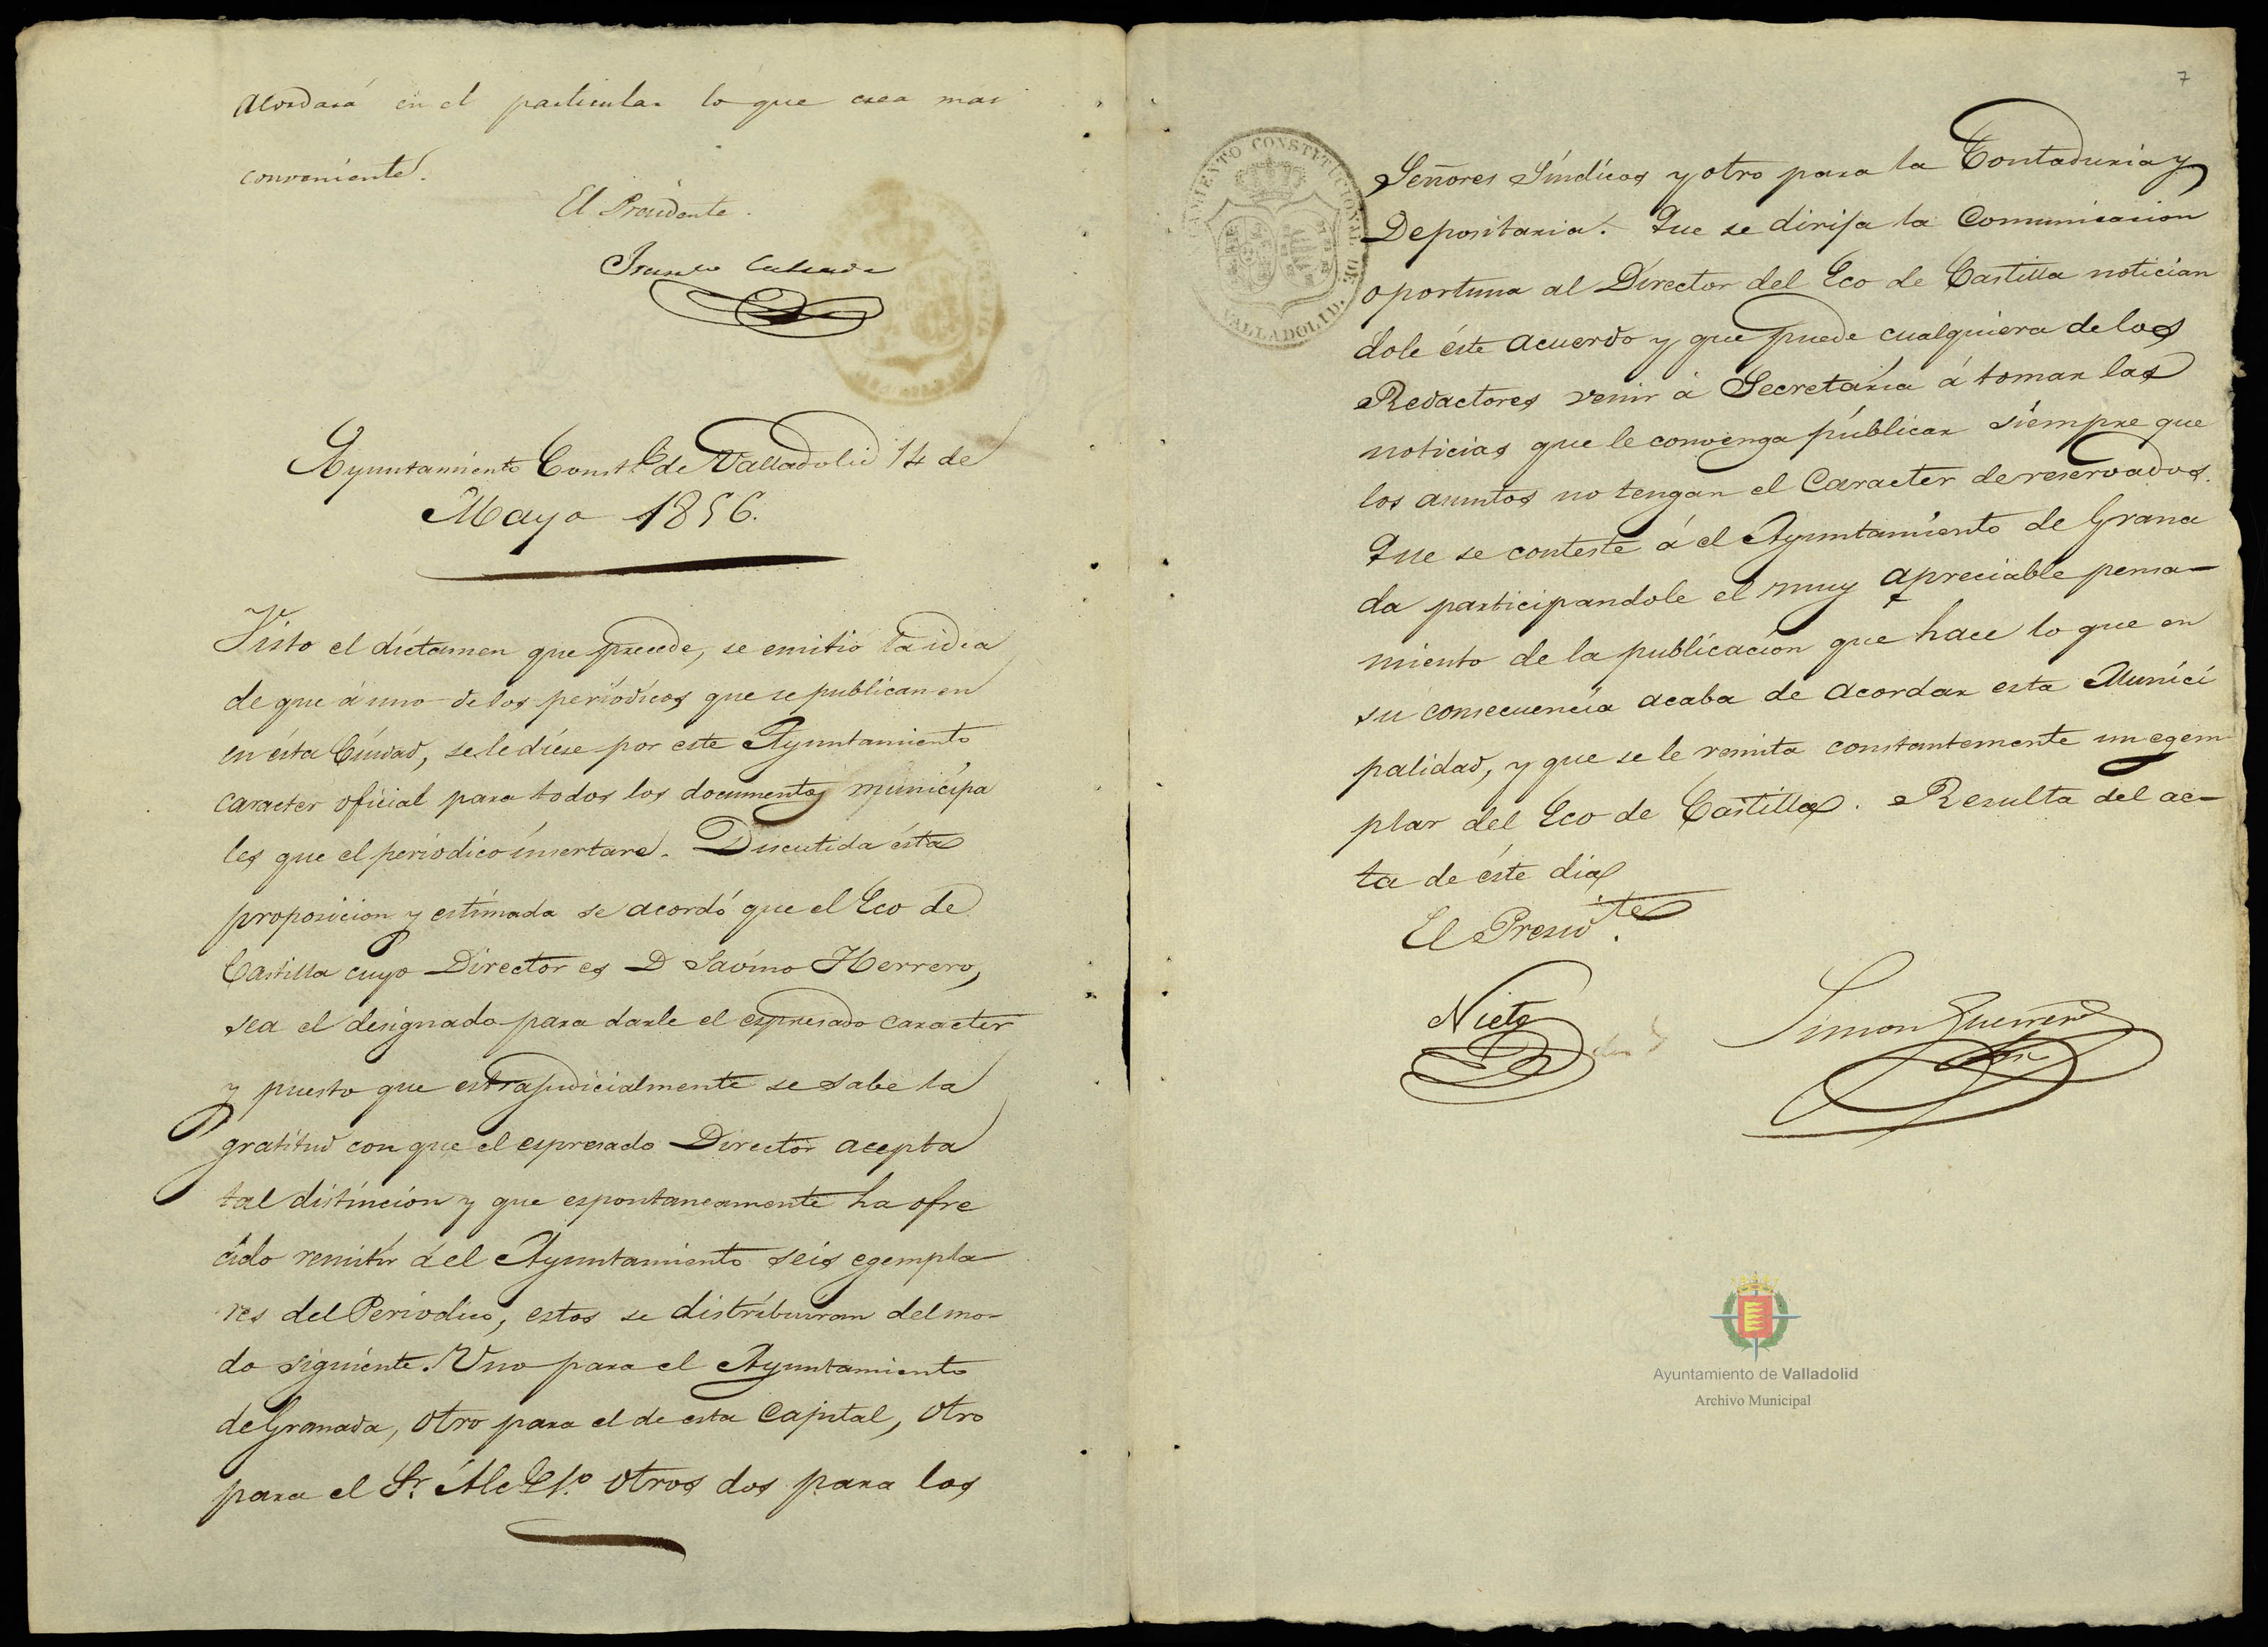 acordará en el particular lo que crea mas
conveniente.
El Presidente.
Ayuntamiento Constl. de Valladolid 14 de
Mayo 1856.
Visto el dictamen que precede, se emitió la idea
de que á uno de los periódicos que se publican en
en ésta Ciudad, se le diese por este Ayuntamiento
caracter oficial para todos los documentos municipa
les que el periodico insertare. Discutida ésta
proposicion y estimada se acordó que el Eco de
Castilla cuyo Director es D Savino Herrero,
sea el designado para darle el espresado caracter
y puesto que estrajudicialmente se sabe la
gratitud con que el espresado Director acepta
tal distincion y que espontaneamente ha ofre
cido remitir á el Ayuntamiento seis egempla
res del Periodico, estos se distribuiran del mo-
do siguiente. Uno para el Ayuntamiento
de Granada, otro para el de esta Capital, otro
para el Sr. Alce. 1º otros dos para los
7
AYUNTAMIENTO CONSTITUCIONAL DE VALLADOLID.
Señores Síndicos y otro para la Contaduria y
Depositaria. Que se dirija la Comunicacion
oportuna al Director del Eco de Castilla notician
dole éste acuerdo y que puede cualquiera de los
Redactores venir á Secretaría á tomar las
noticias que le convenga públicar siempre que
los asuntos no tengan el Caracter de reservados.
Que se conteste á el Ayuntamiento de Grana
da participandole el muy apreciable pensa-
miento de la publicacion que hace lo que en
su consecuencia acaba de acordar esta Munici
palidad, y que se le remita constantemente un egem
plar del Eco de Castilla. Resulta del ac-
ta de éste dia
El Presidte.
Nieto
Simon Guerrero
Ayuntamiento de Valladolid
Archivo Municipal